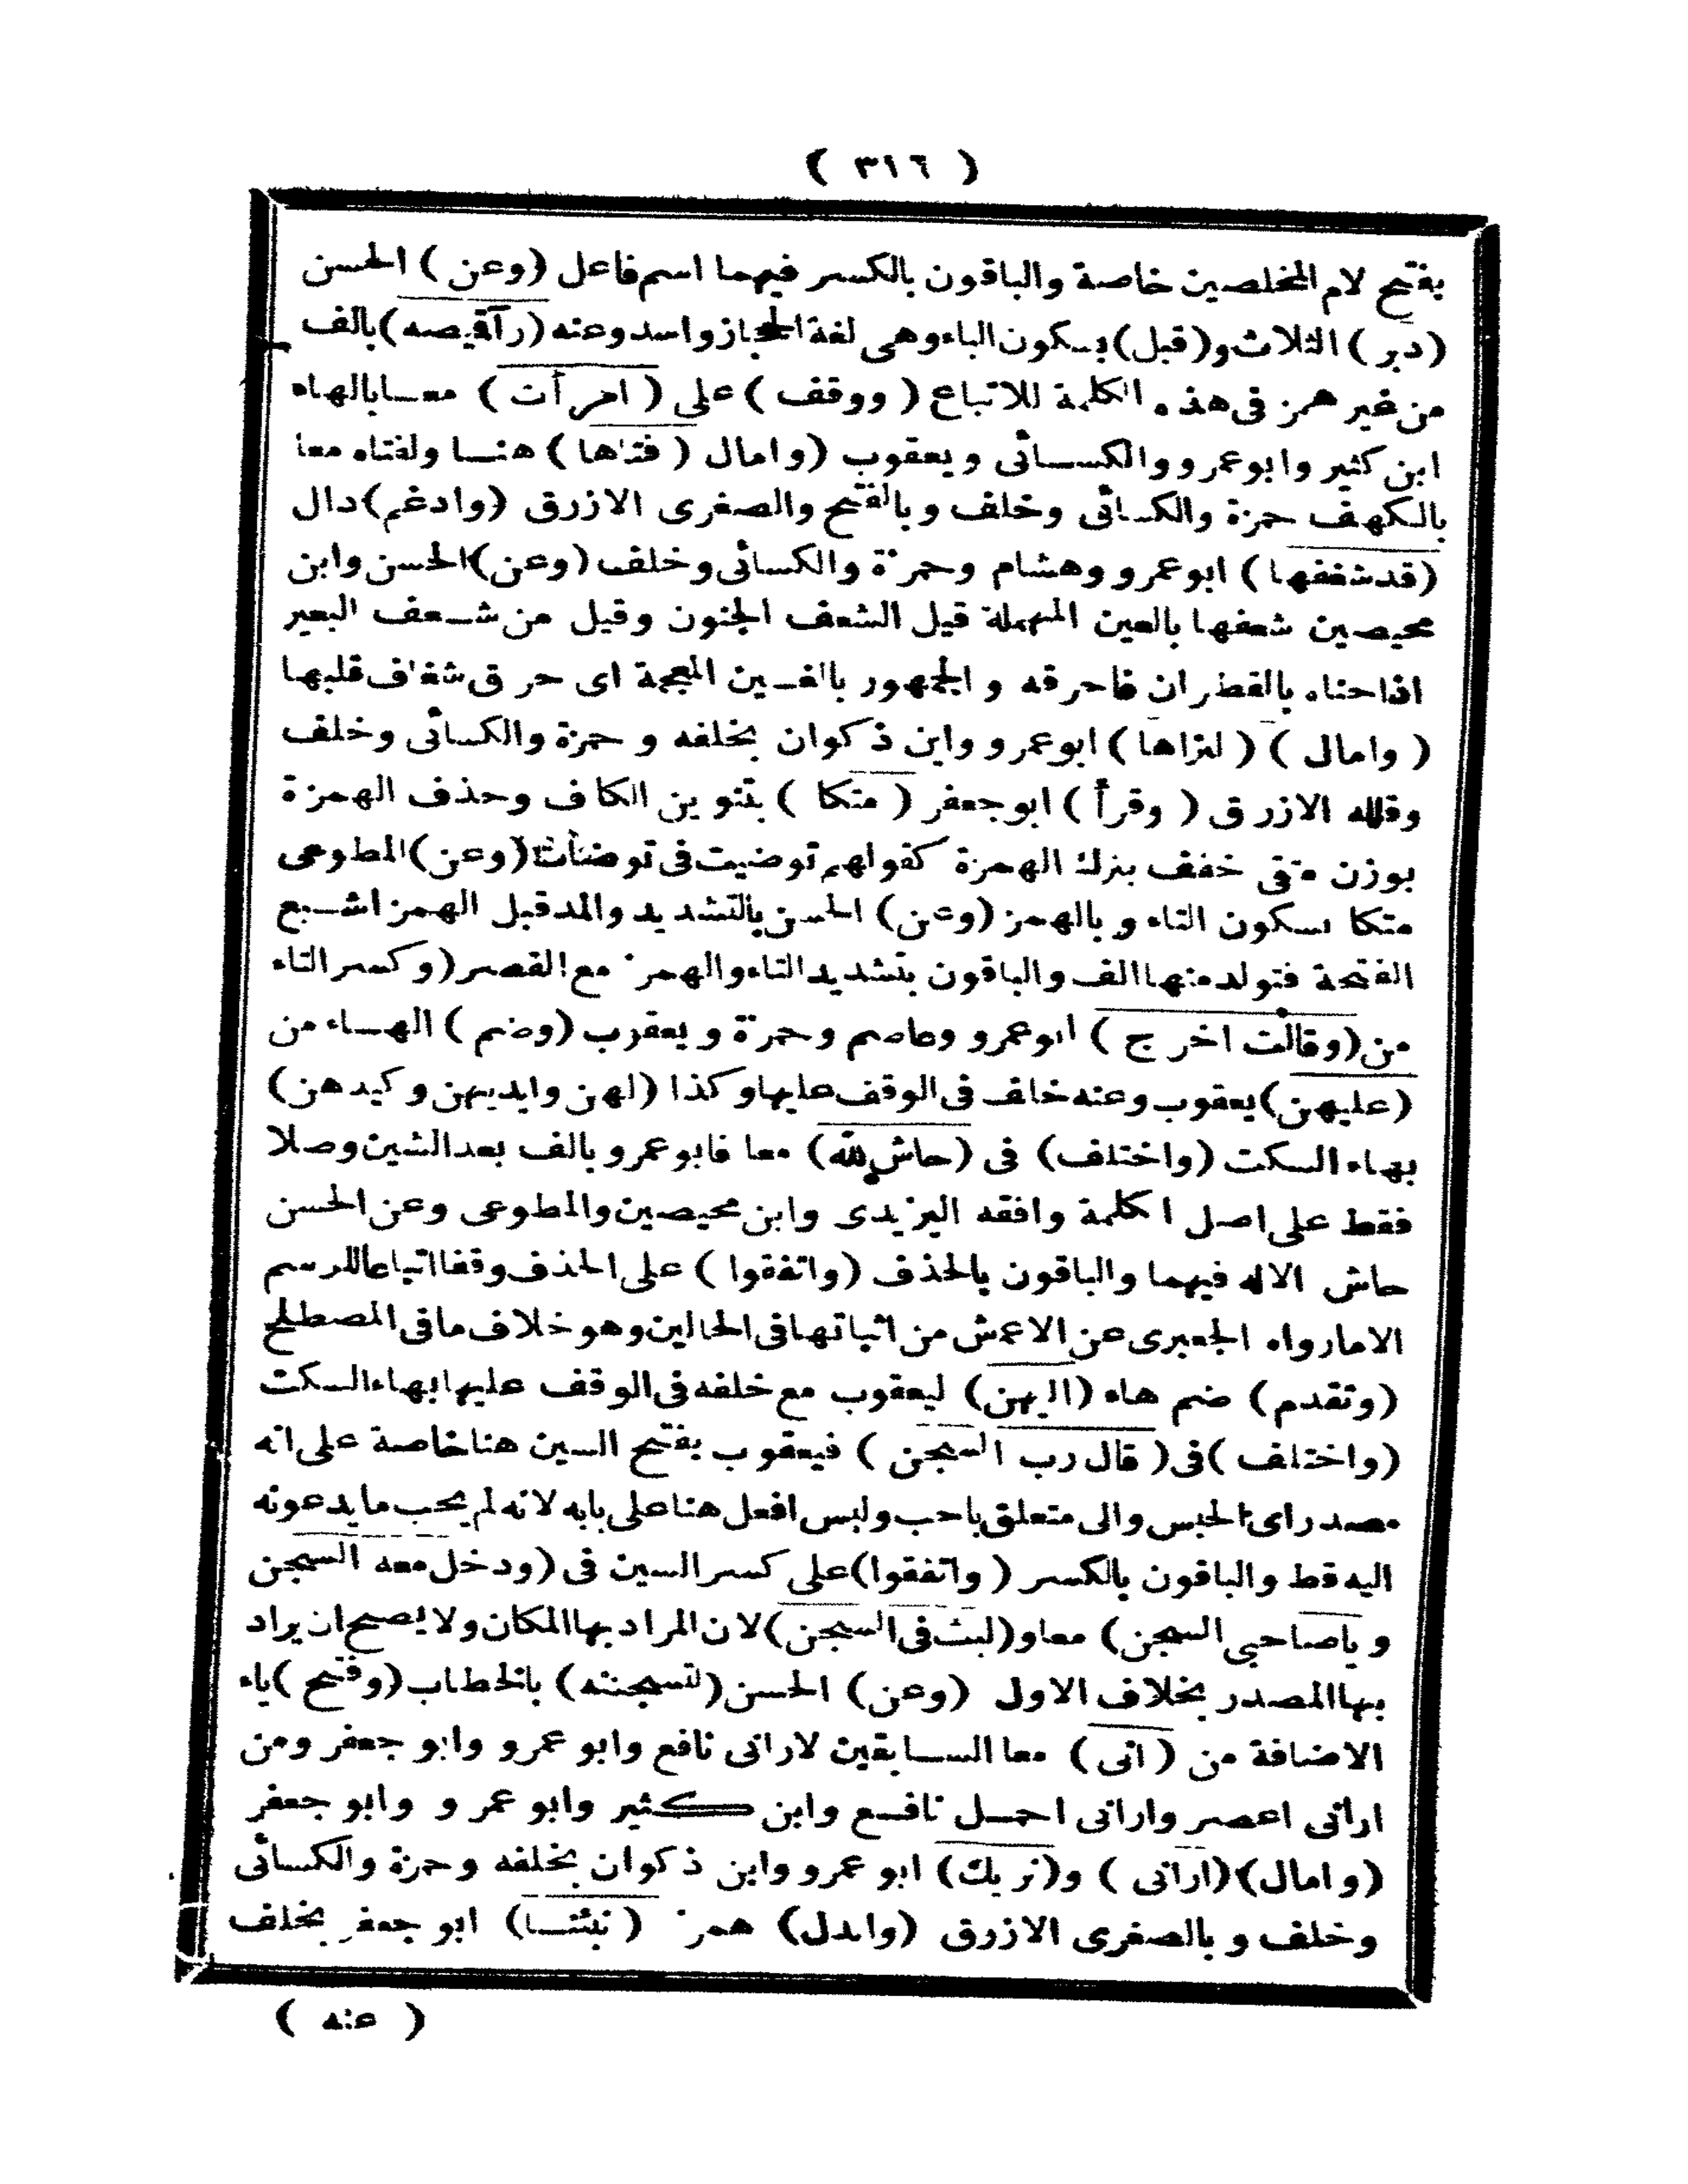 ( ٣١٦ )
بفتح لام المخلصين خاصة والباقون بالكسر فيهما اسم فاعل (وعن) الحسن
(دبر) الثلاث و(قبل) بسكون الباء وهى لغة الحجاز واسد وعنه (رآ قميصه) بالف
من غير همز فى هذه الكلمة للاتباع (ووقف) على (امرأت) معا بالهاء
ابن كثير وابو عمرو والكسائى ويعقوب (وامال (فتاها) هنا ولفتاه معا
بالكهف حمزة والكسائى وخلف وبالفتح والصغرى الازرق (وادغم) دال
(قد شغفها) ابو عمرو وهشام وحمزة والكسائى وخلف (وعن) الحسن وابن
محيصين شعفها بالعين المهملة قيل الشعف الجنون وقيل من شعف البعير
اذا حناه بالقطران فاحرقه والجمهور بالغين المعجمة اى حرق شغاف قلبها
(وامال) (لنراها) ابو عمرو وابن ذكوان بخلفه وحمزة والكسائى وخلف
وقلله الازرق (وقرأ) ابو جعفر (متكا) بتنوين الكاف وحذف الهمزة
بوزن متقى خفف بترك الهمزة كقولهم توضيت فى توضأت (وعن) المطوعى
متكا بسكون التاء وبالهمز (وعن) الحسن بالتشديد والمد قبل الهمز اشبع
الفتحة فتولد منها الف والباقون بتشديد التاء والهمز مع القصر (وكسر التاء
من (وقالت اخرج) ابو عمرو وعاصم وحمزة ويعقوب (وضم) الهاء من
(عليهن) يعقوب وعنه خلف فى الوقف عليها وكذا (لهن وايديهن وكيدهن)
بهاء السكت (واختلف) فى (حاش لله) معا فابو عمرو بالف بعد الشين وصلا
فقط على اصل الكلمة وافقه اليزيدى وابن محيصين والمطوعى وعن الحسن
حاش الاله فيهما والباقون بالحذف (واتفقوا) على الحذف وقفا اتباعا للرسم
الا ما رواه الجعبرى عن الاعمش من اثباتها فى الحالين وهو خلاف ما فى المصطلح
(وتقدم) ضم هاء (اليهن) ليعقوب مع خلفه فى الوقف عليها بهاء السكت
(واختلف) فى (قال رب السجن) فيعقوب بفتح السين هنا خاصة على انه
مصدر اى الحبس والى متعلق باحب وليس افعل هنا على بابه لانه لم يحب ما يدعونه
اليه قط والباقون بالكسر (واتفقوا) على كسر السين فى (ودخل معه السجن
ويا صاحبى السجن) معا و(لبث فى السجن) لان المراد بها المكان ولا يصح ان يراد
بها المصدر بخلاف الاول (وعن) الحسن (لتسجننه) بالخطاب (وفتح) ياء
الاضافة من (انى) معا السابقين لارانى نافع وابو عمرو وابو جعفر ومن
ارانى اعصر وارانى احمل نافع وابن كثير وابو عمرو وابو جعفر
(وامال) (ارانى) و(نريك) ابو عمرو وابن ذكوان بخلفه وحمزة والكسائى
وخلف وبالصغرى الازرق (وابدل) همز (نبئنا) ابو جعفر بخلف
( عنه )